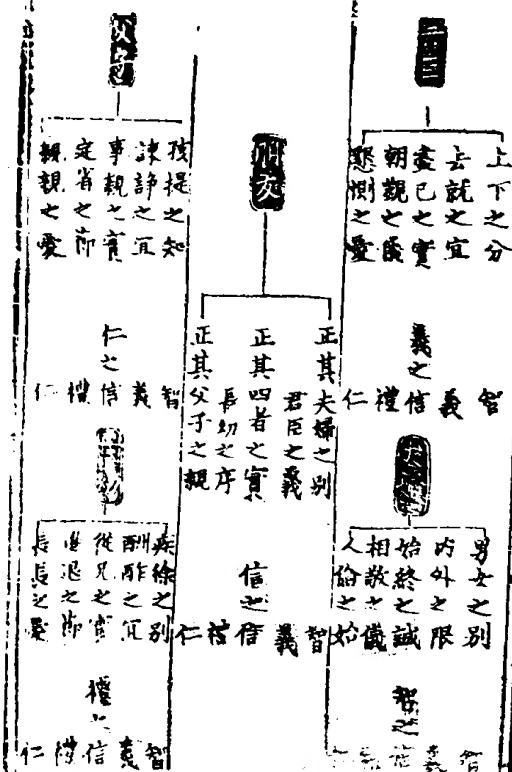 上下之分
去就之宜
盡己之實
朝覲之儀
懇惻之愛
義之
智義信禮仁
夫婦
男女之別
内外之限
始終之誠
相敬之儀
人倫之始
智之
智義信
朋友
正其夫婦之別
君臣之義
正其四者之實
長幼之序
正其父子之親
信之
智義信禮仁
父子
孩提之知
諫諍之宜
事親之實
定省之節
親親之愛
仁之
智義信禮仁
疾徐之別
酬酢之宜
從兄之實
進退之節
長長之愛
禮之
智義信禮仁